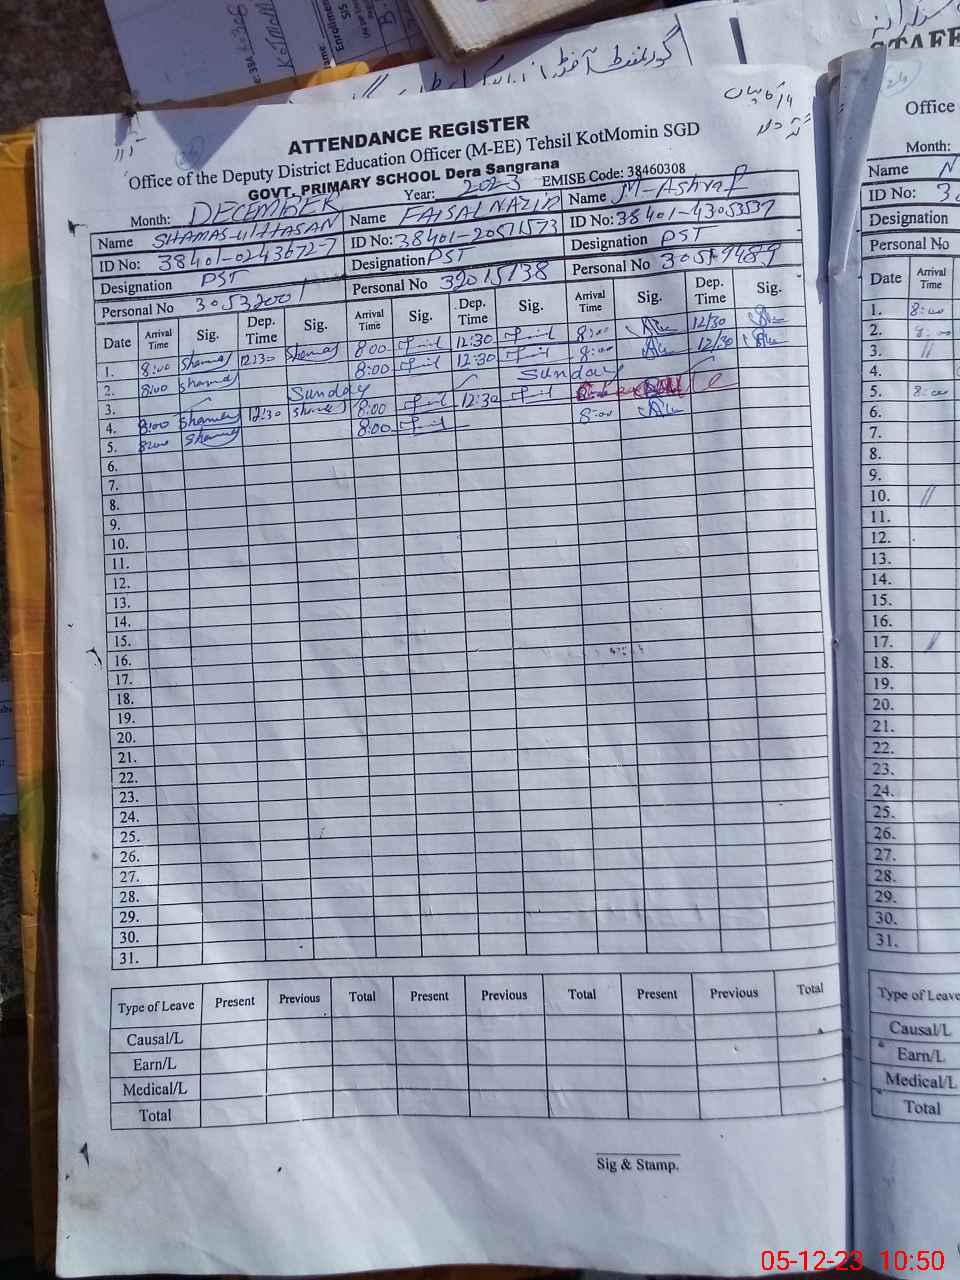 ATTENDANCE REGISTER
Office of the Deputy District Education Officer (M-EE) Tehsil KotMomin SGD
GOVT. PRIMARY SCHOOL Dera Sangrana
Month: DECEMBER Year: 2023 EMISE Code: 38460308
Name SHAMAS-UL-HASSAN Name FAISAL NAZIR Name M-Ashraf
ID No: 38401-0243672-7 ID No: 38401-20511573 ID No: 38401-43053537
Designation PST Designation PST Designation PST
Personal No 30532001 Personal No 32015138 Personal No 30519489
Date Arrival Time Sig. Dep. Time Sig. Arrival Time Sig. Dep. Time Sig. Arrival Time Sig. Dep. Time Sig.
1. 8:00 Shamas 12:30 Shamas 8:00 12:30 8:00 12/30
2. 8:00 Shamas 8:00 12:30 8:00 12/30
3. Sunday Sunday
4. 8:00 Shamas 12:30 Shamas 8:00 12:30
5. 8:00 Shamas 8:00 8:00
6.
7.
8.
9.
10.
11.
12.
13.
14.
15.
16.
17.
18.
19.
20.
21.
22.
23.
24.
25.
26.
27.
28.
29.
30.
31.
Type of Leave Present Previous Total Present Previous Total Present Previous Total
Causal/L
Earn/L
Medical/L
Total
Sig & Stamp.
Office
Month:
Name
ID No:
Designation
Personal No
Date Arrival Time
1. 8:00
2. 8:00
3. //
4.
5. 8:00
6.
7.
8.
9.
10. //
11.
12.
13.
14.
15.
16.
17. //
18.
19.
20.
21.
22.
23.
24.
25.
26.
27.
28.
29.
30.
31.
Type of Leave
Causal/L
Earn/L
Medical/L
Total
05-12-23 10:50